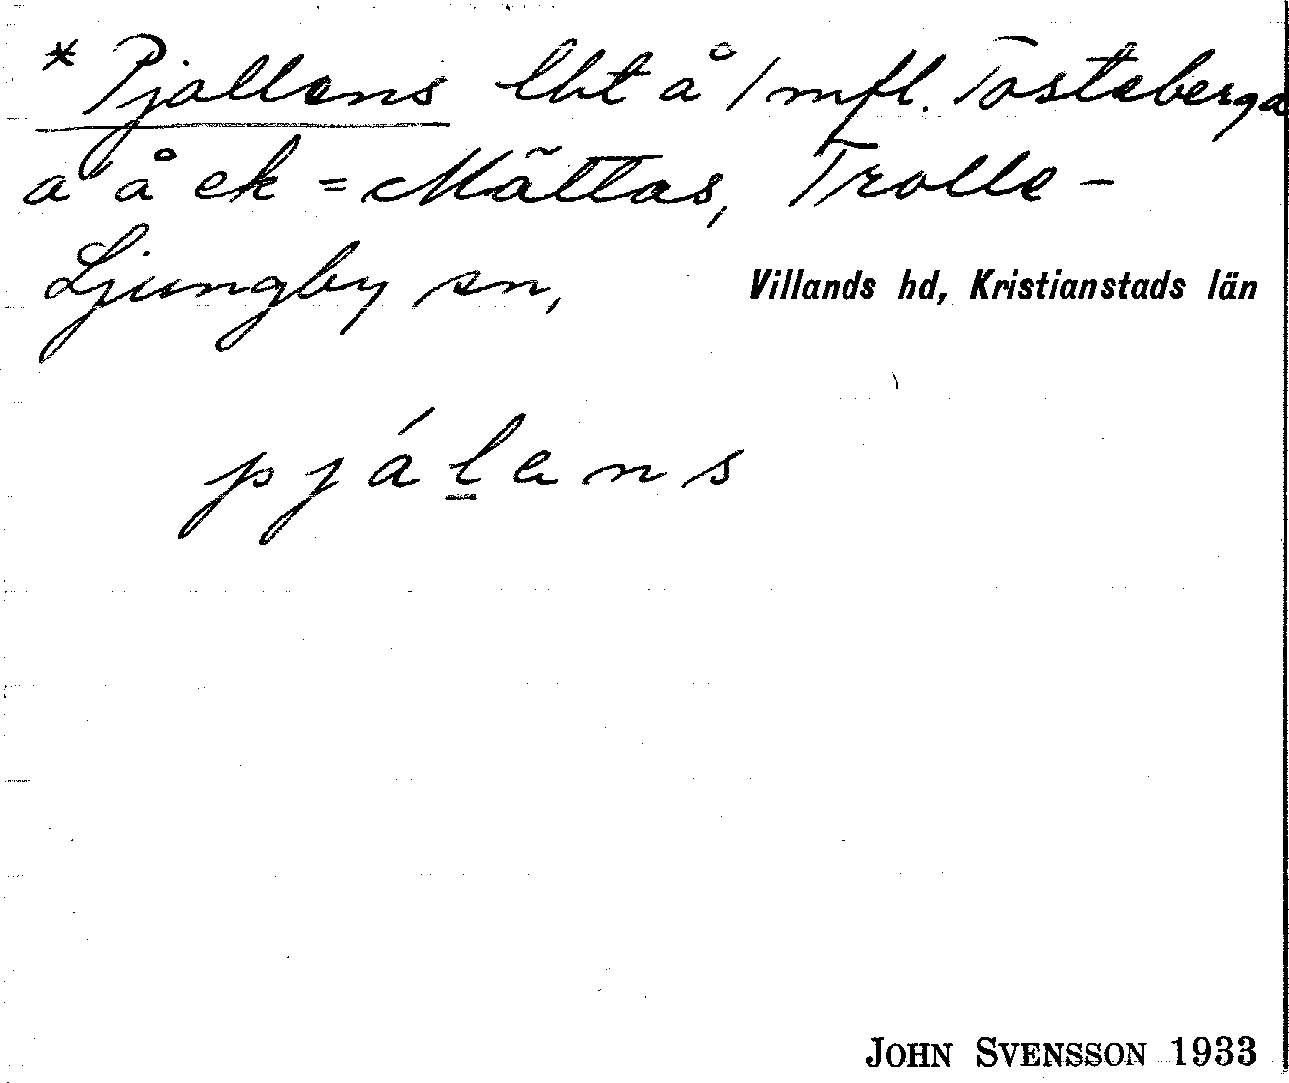 * Pjallens lht å 1 mfl. Tosteberga
a å ek = Mättas, Trolle-
Ljungby sn, Villands hd, Kristianstads län
pjálens
JOHN SVENSSON 1933